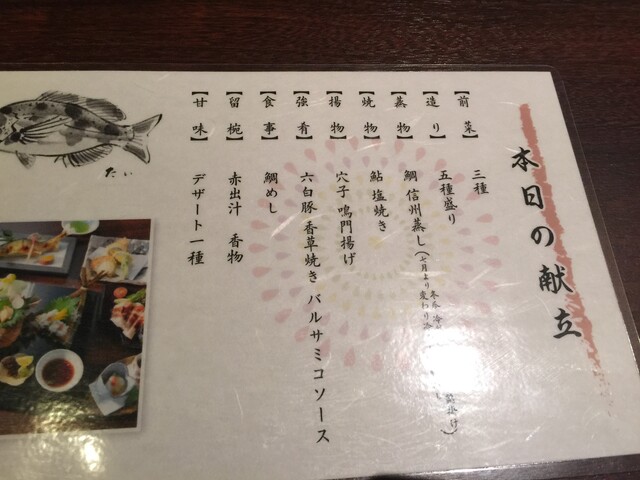 本日の献立
【前菜】 三種
【造り】 五種盛り
【蒸物】 鯛 信州蒸し(七月より変わり冷
【焼物】 鮎 塩焼き
【揚物】 穴子 鳴門揚げ
【強肴】 六白豚 香草焼き バルサミコソース
【食事】 鯛めし
【留椀】 赤出汁 香物
【甘味】 デザート一種
たい